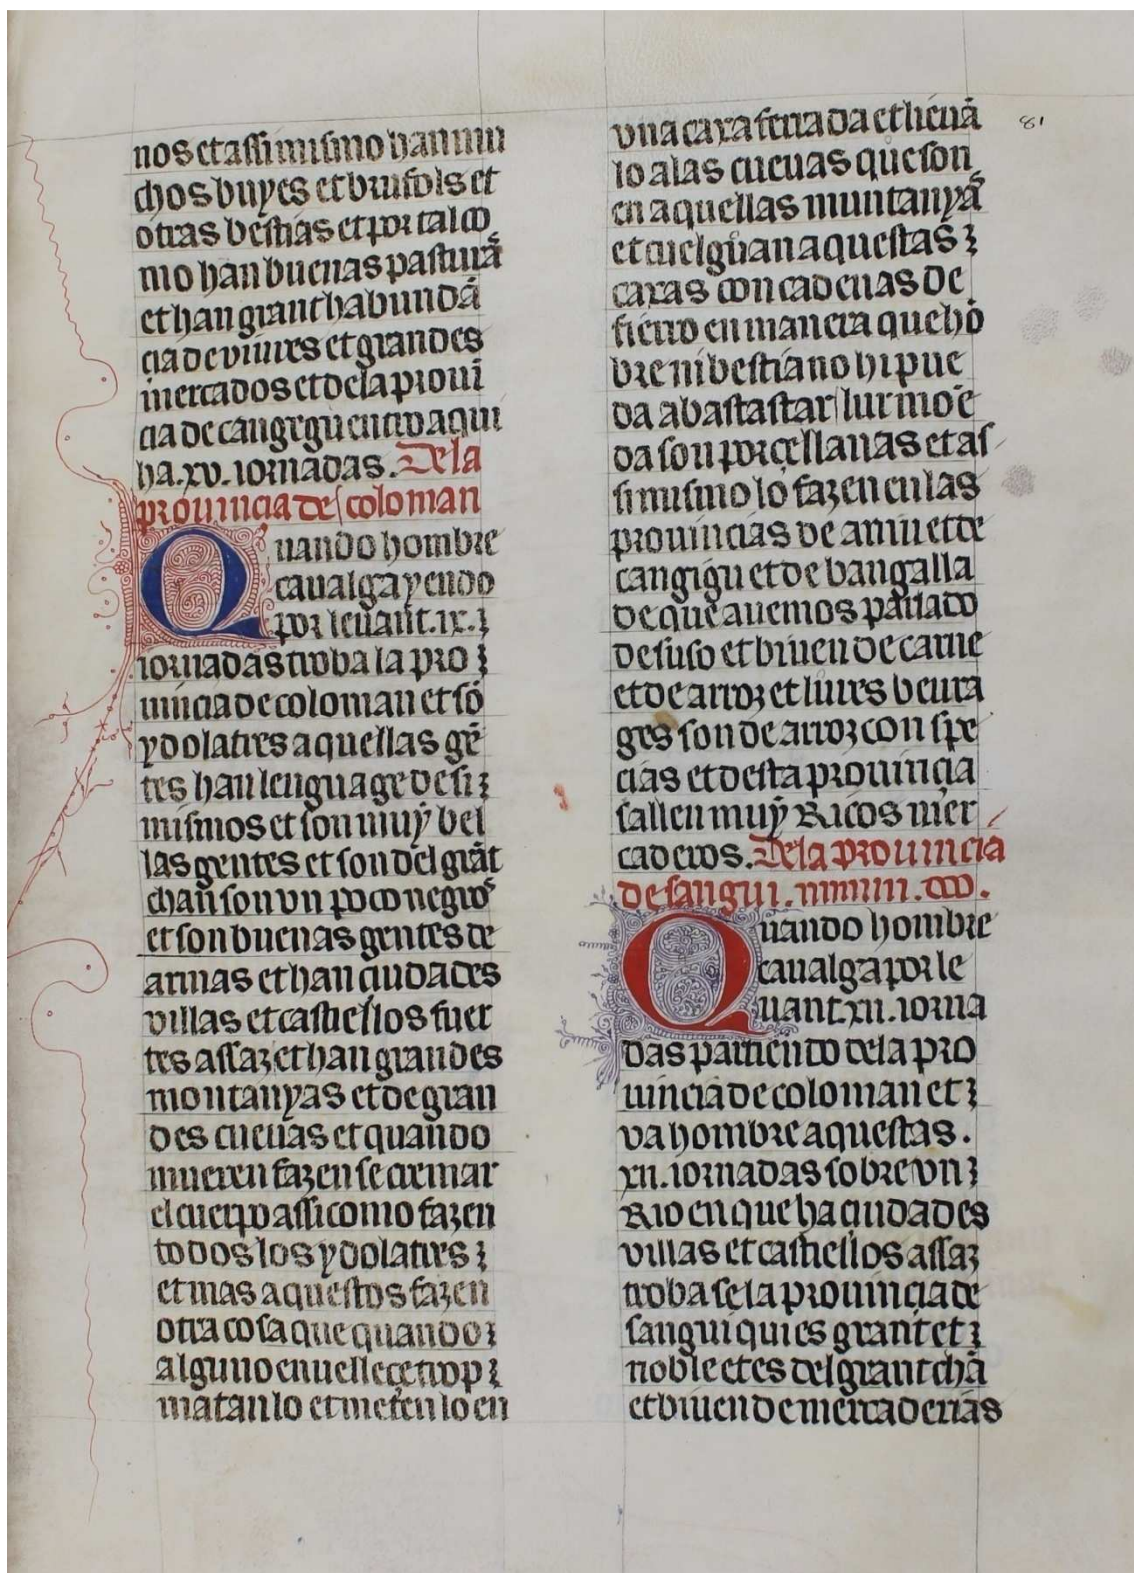 nos et assi mismo han mu
chos buyes et brufols et
otras bestias et por tal co
mo han buenas pasturas̄
et han grant habundā
cia de viures et grandes
mercados et de la prouī
cia de cangegu entro aqui
ha .xv. iornadas. De la
prouincia de coloman
Quando hombre
caualga yendo
por leuant .ix. ꝫ
iornadas troba la pro ꝫ
uincia de coloman et sō
ydolatres aquellas gē
tes han lenguage de si ꝫ
mismos et son muy bel
las gentes et son del grāt
chan son vn poco negros
et son buenas gentes de
armas et han ciudades
villas et castiellos fuer
tes assaz et han grandes
montanyas et de gran
des cueuas et quando
mueren fazen se cremar
el cuerpo assi como fazen
todos los ydolatres ꝫ
et mas aquestos fazen
otra cosa que quando ꝫ
alguno enuellece trop ꝫ
matan lo et meten lo en
vna caxa ferrada et lieuā
lo a las cueuas que son
en aquellas muntanyās
et cuelguan aquestas ꝫ
caxas con cadenas de
fierro en manera que hō
bre ni bestia no hi pue
da abastastar lur moē
da son porcellanas et as
si mismo lo fazen en las
prouincias de amu et de
cangigu et de bangalla
de que auemos parlado
de suso et biuen de carne
et de arroz et lures beura
ges son de arroz con spe
cias et desta prouincia
sallen muy Ricos mer
caderos. De la prouincia
de sangui.
Quando hombre
caualga por le
uant .xii. iorna
das partiendo de la pro
uincia de coloman et ꝫ
va hombre aquestas .
xii. iornadas sobre vn ꝫ
Rio en que ha ciudades
villas et castiellos assaz
troba se la prouincia de
sangui qui es grant et ꝫ
noble et es del grant chā
et biuen de mercaderias
81